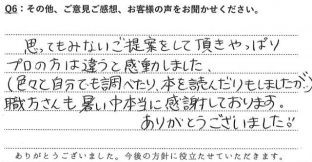 Q6：その他、ご意見ご感想、お客様の声をお聞かせください。
思ってもみないご提案をして頂きやっぱり
プロの方は違うと感動しました。
(色々と自分でも調べたり、本を読んだりもしましたが)
職方さんも暑い中本当に感謝しております。
ありがとうございました!!
ありがとうございました。今後の方針に役立たせていただきます。